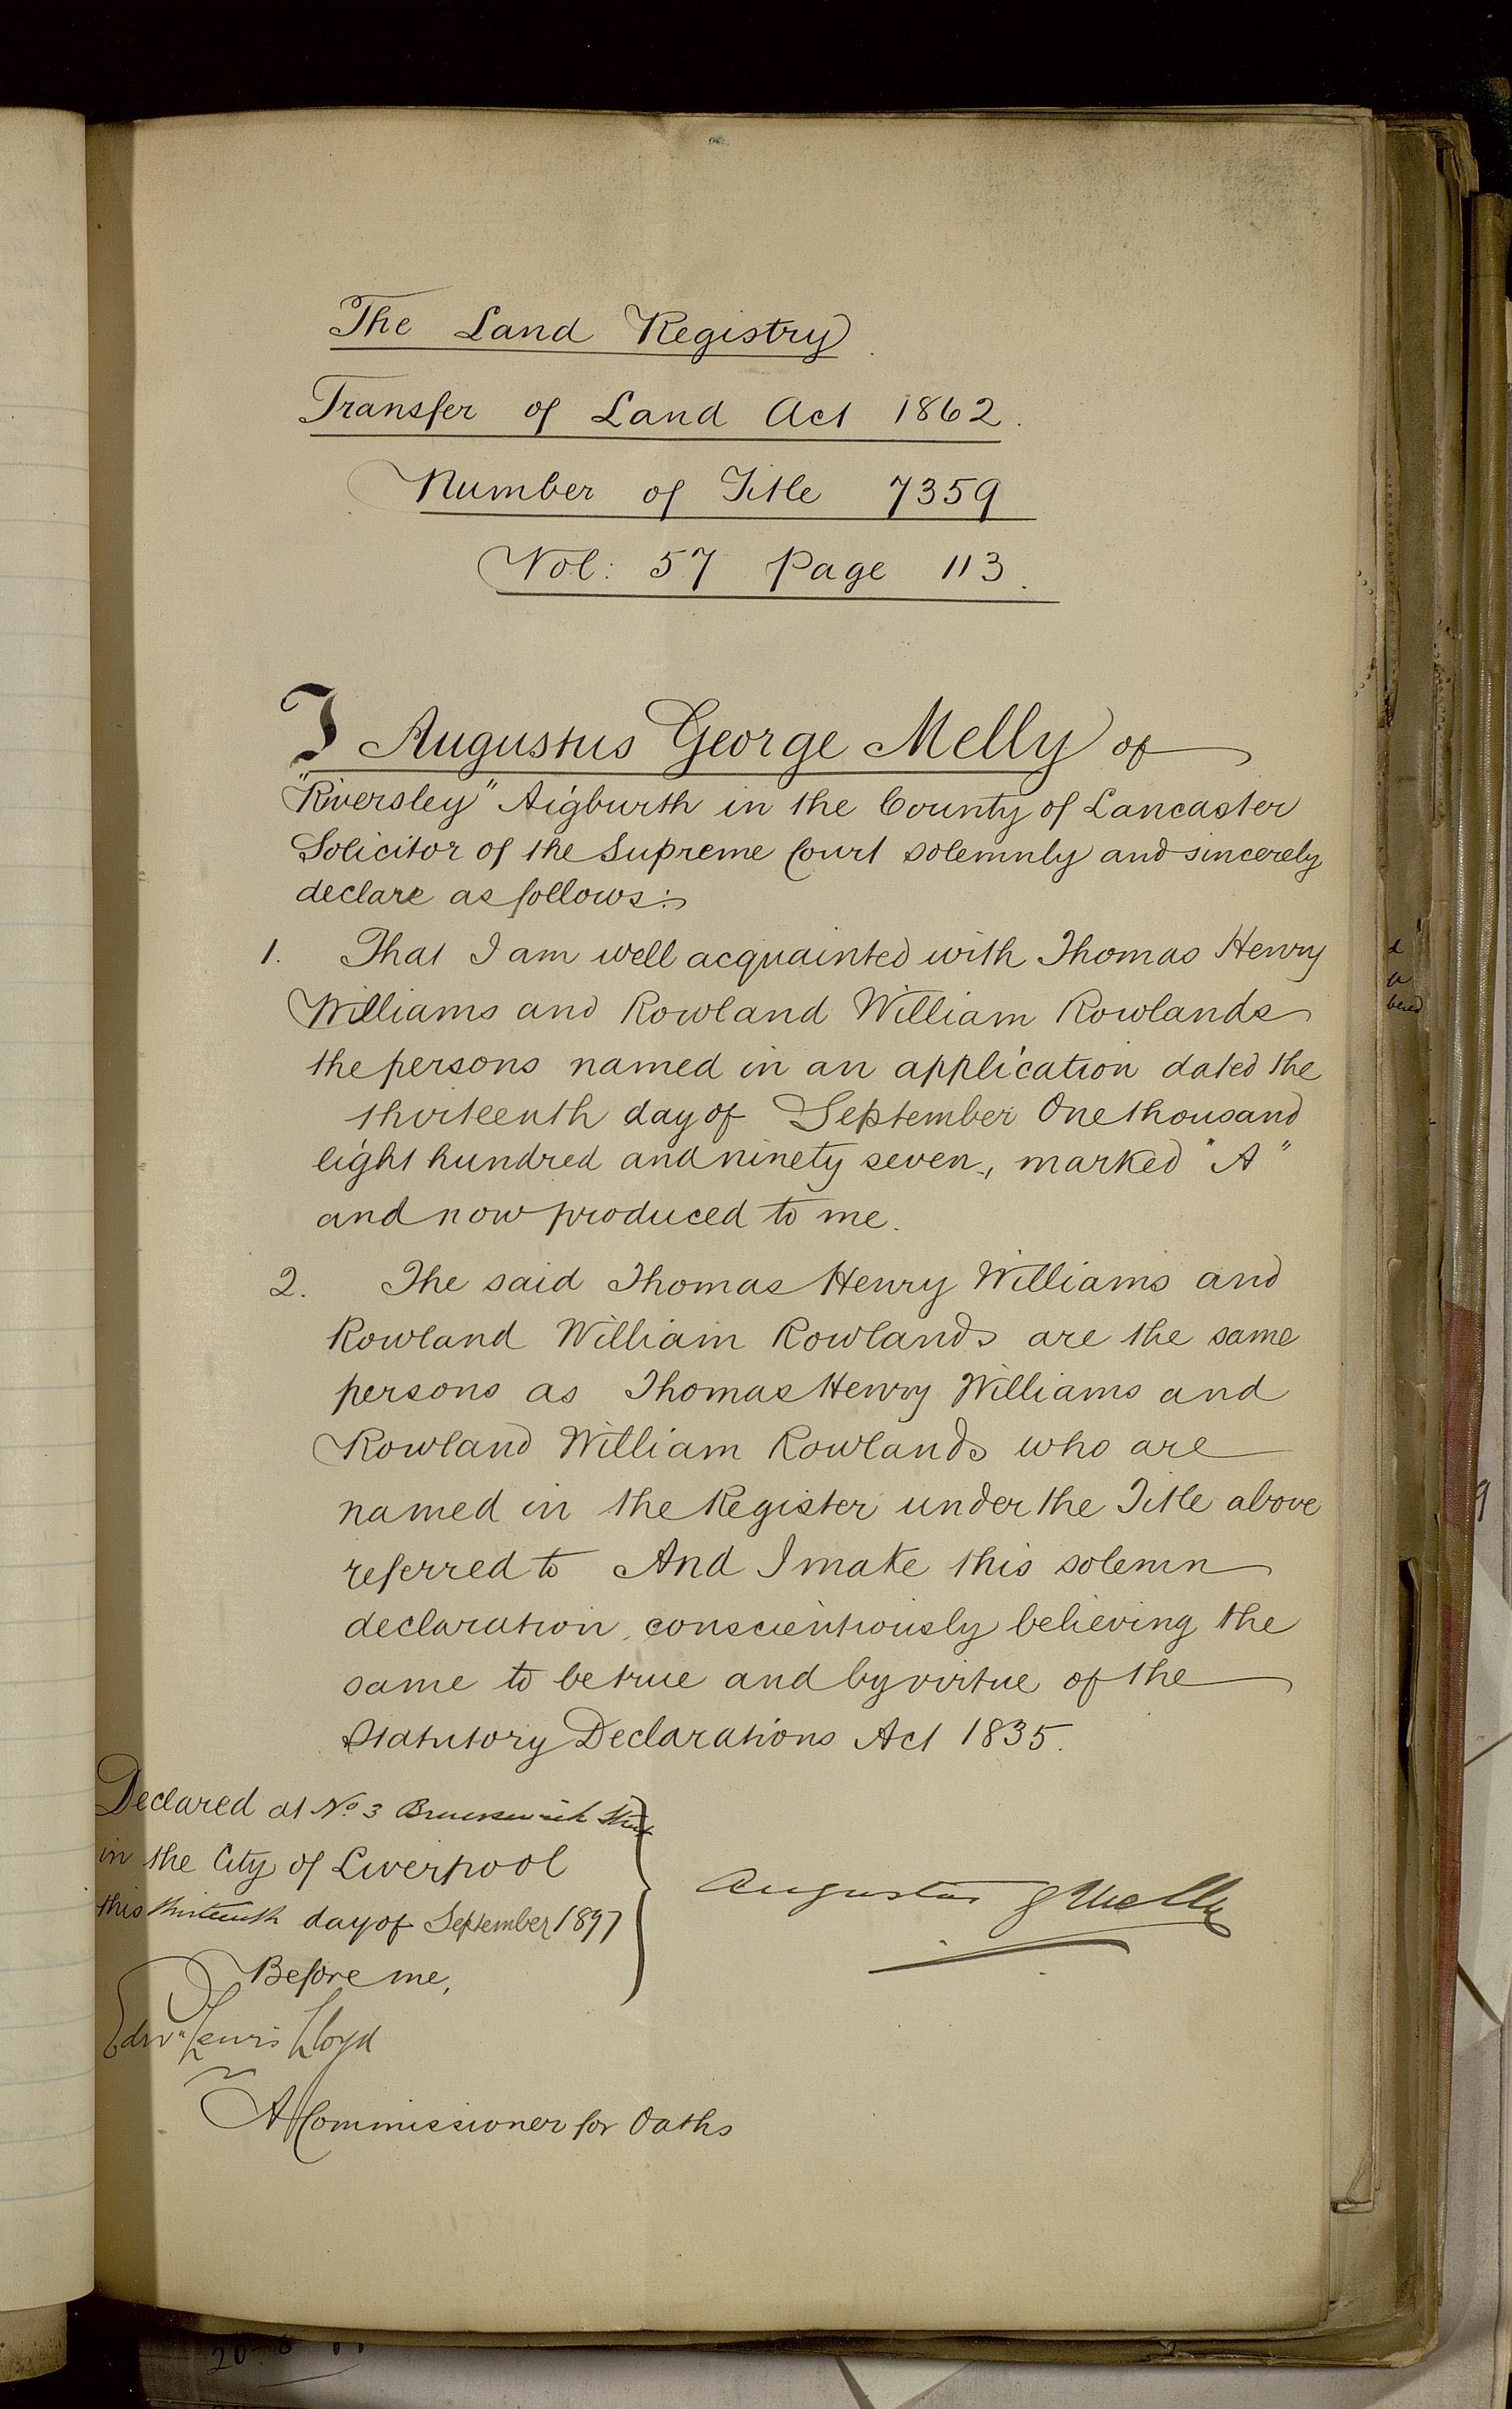 The Land Registry
Transfer of Land Act 1862.
Number of Title 7359
Vol: 57 Page 113.
I Augustus George Melly of
"Riversley" Aigburth in the County of Lancaster
Solicitor of the Supreme Court solemnly and sincerely
declare as follows:
1. That I am well acquainted with Thomas Henry
Williams and Rowland William Rowlands
the persons named in an application dated the
thirteenth day of September One thousand
eight hundred and ninety seven, marked "A"
and now produced to me.
2. The said Thomas Henry Williams and
Rowland William Rowlands are the same
persons as Thomas Henry Williams and
Rowland William Rowlands who are
named in the Register under the Title above
referred to And I make this solemn
declaration conscientiously believing the
same to be true and by virtue of the
Statutory Declarations Act 1835.
Declared at No. 3 Brunswick Street
in the City of Liverpool
this thirteenth day of September 1897
Before me,
Augustus G Melly
Edwd Lewis Lloyd
A Commissioner for Oaths